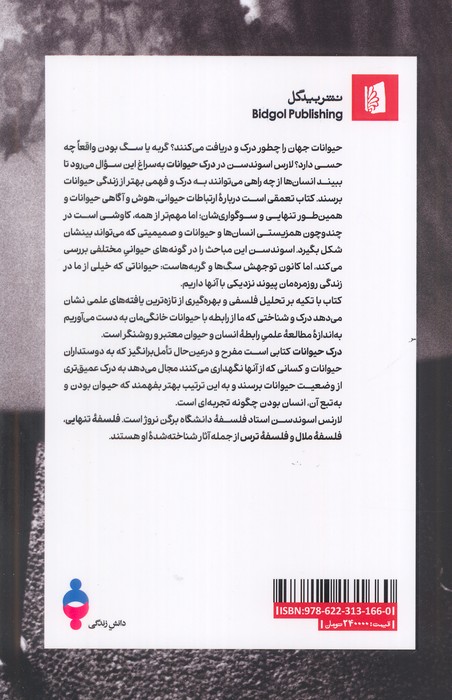 نشر بیدگل
Bidgol Publishing
حیوانات جهان را چطور درک و دریافت می‌کنند؟ گربه یا سگ بودن واقعاً چه
حسی دارد؟ لارس اسوندسن در درک حیوانات به‌سراغ این سؤال می‌رود تا
ببیند انسان‌ها از چه راهی می‌توانند به درک و فهمی بهتر از زندگی حیوانات
برسند. کتاب تعمقی است دربارهٔ ارتباطات حیوانی، هوش و آگاهی حیوانات و
همین‌طور تنهایی و سوگواری‌شان؛ اما مهم‌تر از همه، کاوشی است در
چندوچون همزیستی انسان‌ها و حیوانات و صمیمیتی که می‌تواند بینشان
شکل بگیرد. اسوندسن این مباحث را در گونه‌های حیوانیِ مختلفی بررسی
می‌کند، اما کانون توجهش سگ‌ها و گربه‌هاست: حیواناتی که خیلی از ما در
زندگی روزمره‌مان پیوند نزدیکی با آنها داریم.
کتاب با تکیه بر تحلیل فلسفی و بهره‌گیری از تازه‌ترین یافته‌های علمی نشان
می‌دهد درک و شناختی که ما از رابطه با حیوانات خانگی‌مان به دست می‌آوریم
به‌اندازهٔ مطالعهٔ علمیِ رابطهٔ انسان و حیوان معتبر و روشنگر است.
درک حیوانات کتابی است مفرح و درعین‌حال تأمل‌برانگیز که به دوستداران
حیوانات و کسانی که از آنها نگهداری می‌کنند مجال می‌دهد به درک عمیق‌تری
از وضعیت حیوانات برسند و به این ترتیب بهتر بفهمند که حیوان بودن و
به‌تبع آن، انسان بودن چگونه تجربه‌ای است.
لارنس اسوندسن استاد فلسفهٔ دانشگاه برگن نروژ است. فلسفهٔ تنهایی،
فلسفهٔ ملال و فلسفهٔ ترس از جمله آثار شناخته‌شدهٔ او هستند.
ISBN: 978-622-313-166-0
قیمت: ۲۴۰۰۰۰ تومان
دانشِ زندگی